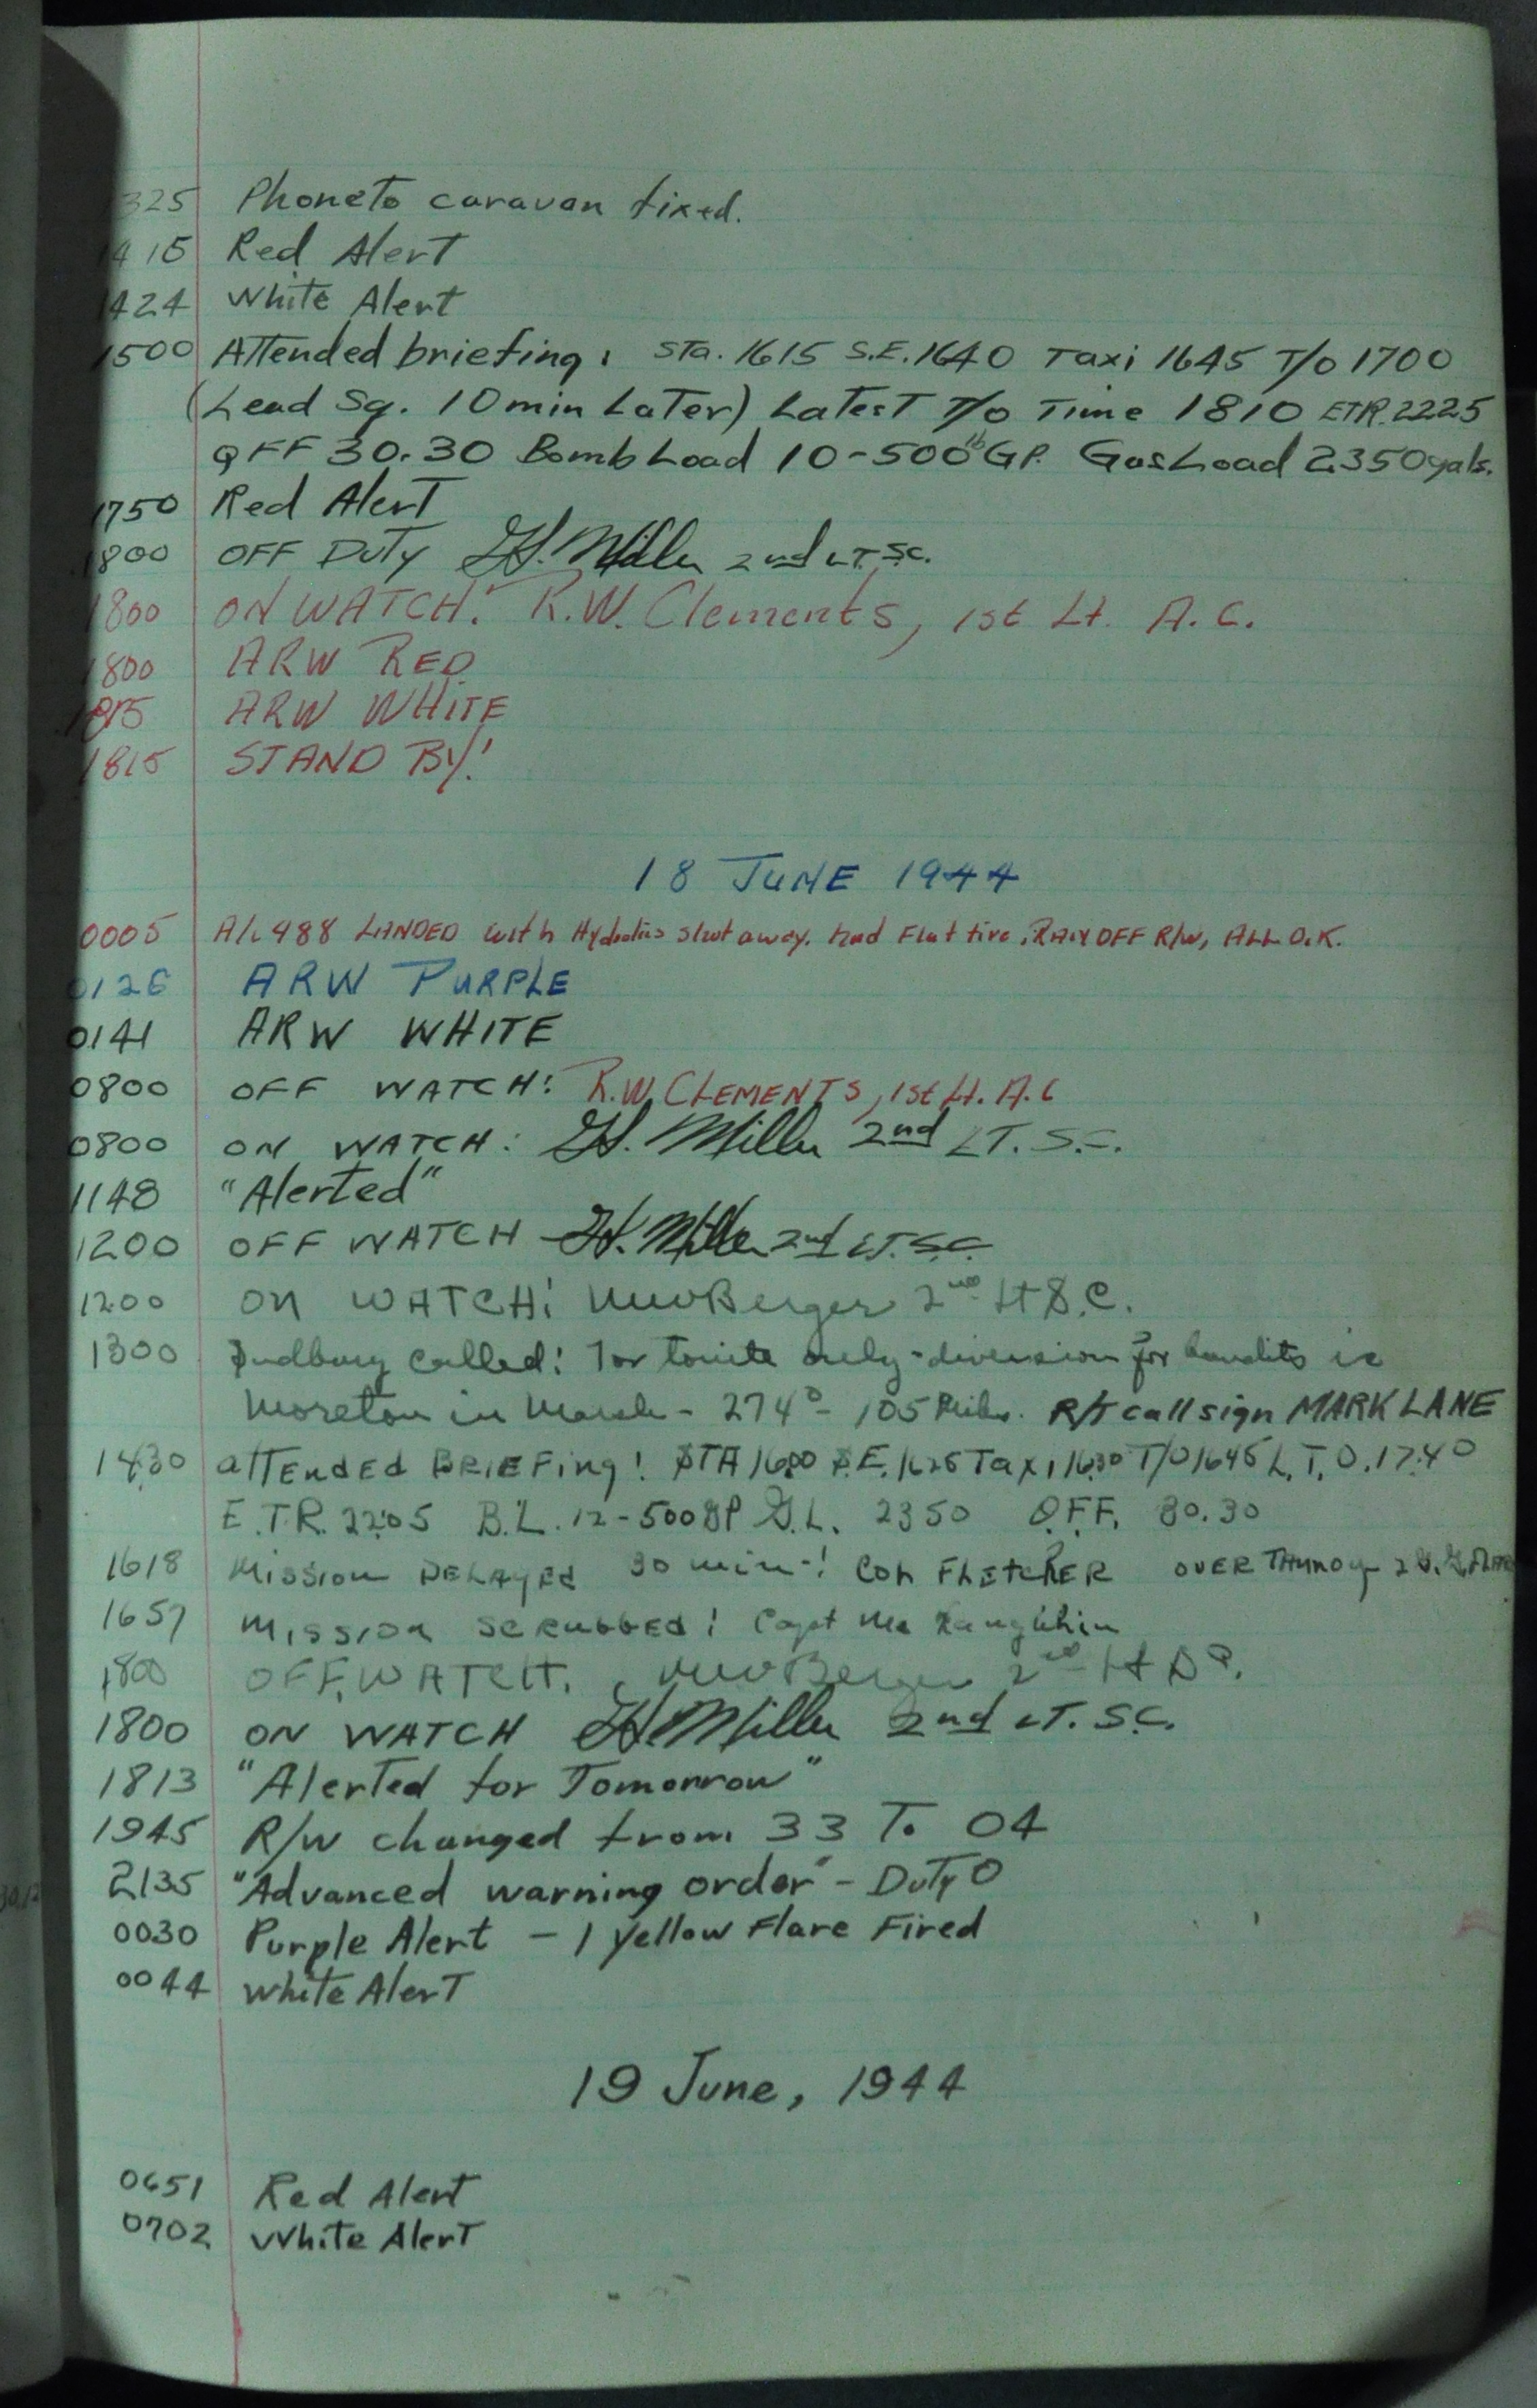 325 Phone to caravan fixed.
1415 Red Alert
1424 White Alert
1500 Attended briefing: Sta. 1615 S.E. 1640 Taxi 1645 T/O 1700
(Lead Sq. 10 min Later) Latest T/O Time 1810 ETR. 2225
QFF 30.30 Bomb Load 10-500 lb GP. Gas Load 2350 gals.
1750 Red Alert
1800 OFF DUTY H. Miller 2nd LT. SC.
1800 ON WATCH: R.W. Clements, 1st Lt. A.C.
1800 ARW RED
1815 ARW WHITE
1815 STAND BY!
18 JUNE 1944
0005 A/c 488 LANDED with Hydraulics shot away. had Flat tire. RAN OFF R/W, ALL O.K.
0126 ARW PURPLE
0141 ARW WHITE
0800 OFF WATCH: R.W. CLEMENTS, 1st Lt. A.C
0800 ON WATCH: H. Miller 2nd LT. S.C.
1148 "Alerted"
1200 OFF WATCH H. Miller 2nd LT. S.C.
1200 ON WATCH: Berger 2nd Lt S.C.
1300 called: For tonite only - diversion for bandits is
Moreton in Marsh - 274° - 105 Miles. R/T call sign MARK LANE
1430 ATTENDED BRIEFing! STA 1600 S.E. 1625 Taxi 1630 T/O 1645 L.T.O. 1740
E.T.R. 2205 B.L. 12-500 GP G.L. 2350 Q.F.F. 30.30
1618 Mission DELAYED 30 min! Col FLETCHER OVER
1657 MISSION SCRUBBED! Capt
1800 OFF WATCH. Berger 2nd Lt
1800 ON WATCH H. Miller 2nd LT. S.C.
1813 "Alerted for Tomorrow"
1945 R/W changed from 33 To 04
2135 "Advanced warning order" - Duty O
0030 Purple Alert - 1 yellow Flare Fired
0044 White Alert
19 June, 1944
0651 Red Alert
0702 White Alert